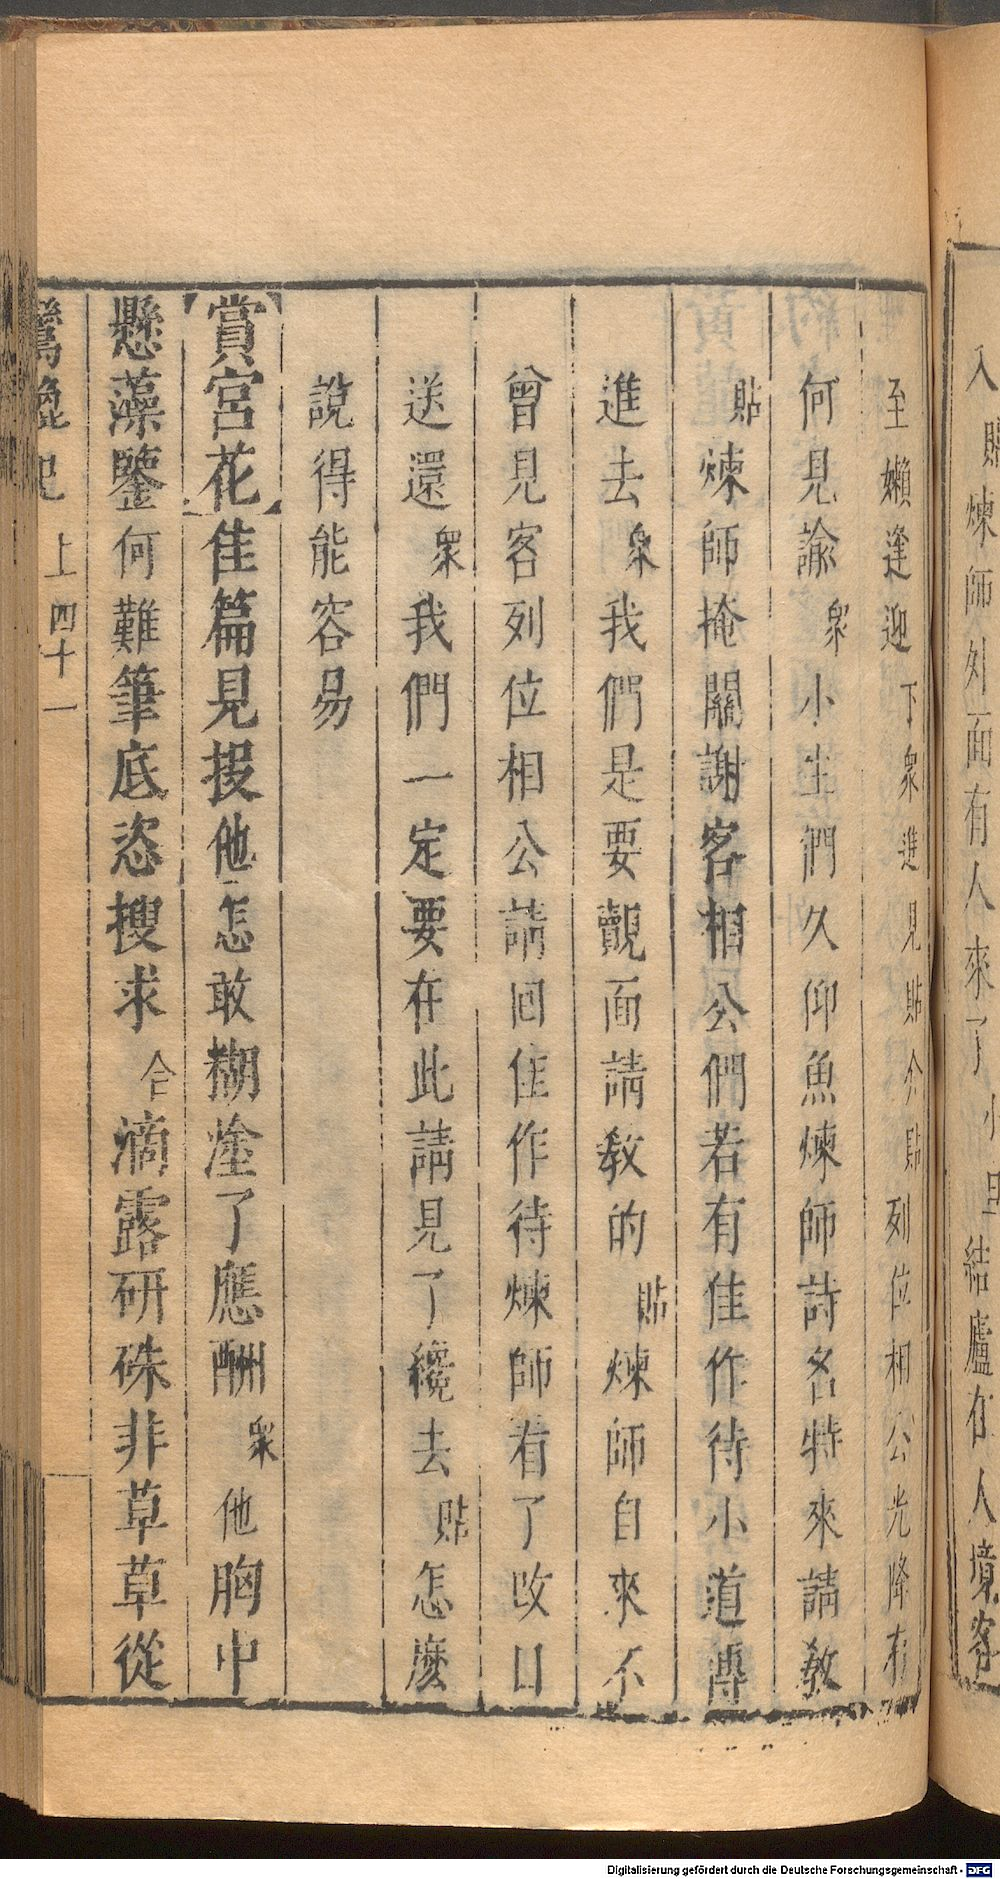 入貼煉師外面有人來了小旦結廬在人境客
至嬾逢迎下衆進見貼介貼列位相公光降有
何見諭衆小生們久仰魚煉師詩名特來請教
貼煉師掩關謝客相公們若有佳作待小道傳
進去衆我們是要覿面請教的貼煉師自來不
曾見客列位相公請回佳作待煉師看了改日
送還衆我們一定要在此請見了纔去貼怎麽
說得能容易
【賞宮花】佳篇見投他怎敢糊塗了應酬衆他胸中
懸藻鑒何難筆底恣搜求合滴露研硃非草草從
鸞鎞記 上 四十一
Digitalisierung gefördert durch die Deutsche Forschungsgemeinschaft - DFG